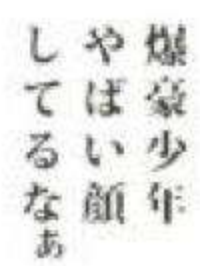 爆豪少年
やばい顔
してるなぁ